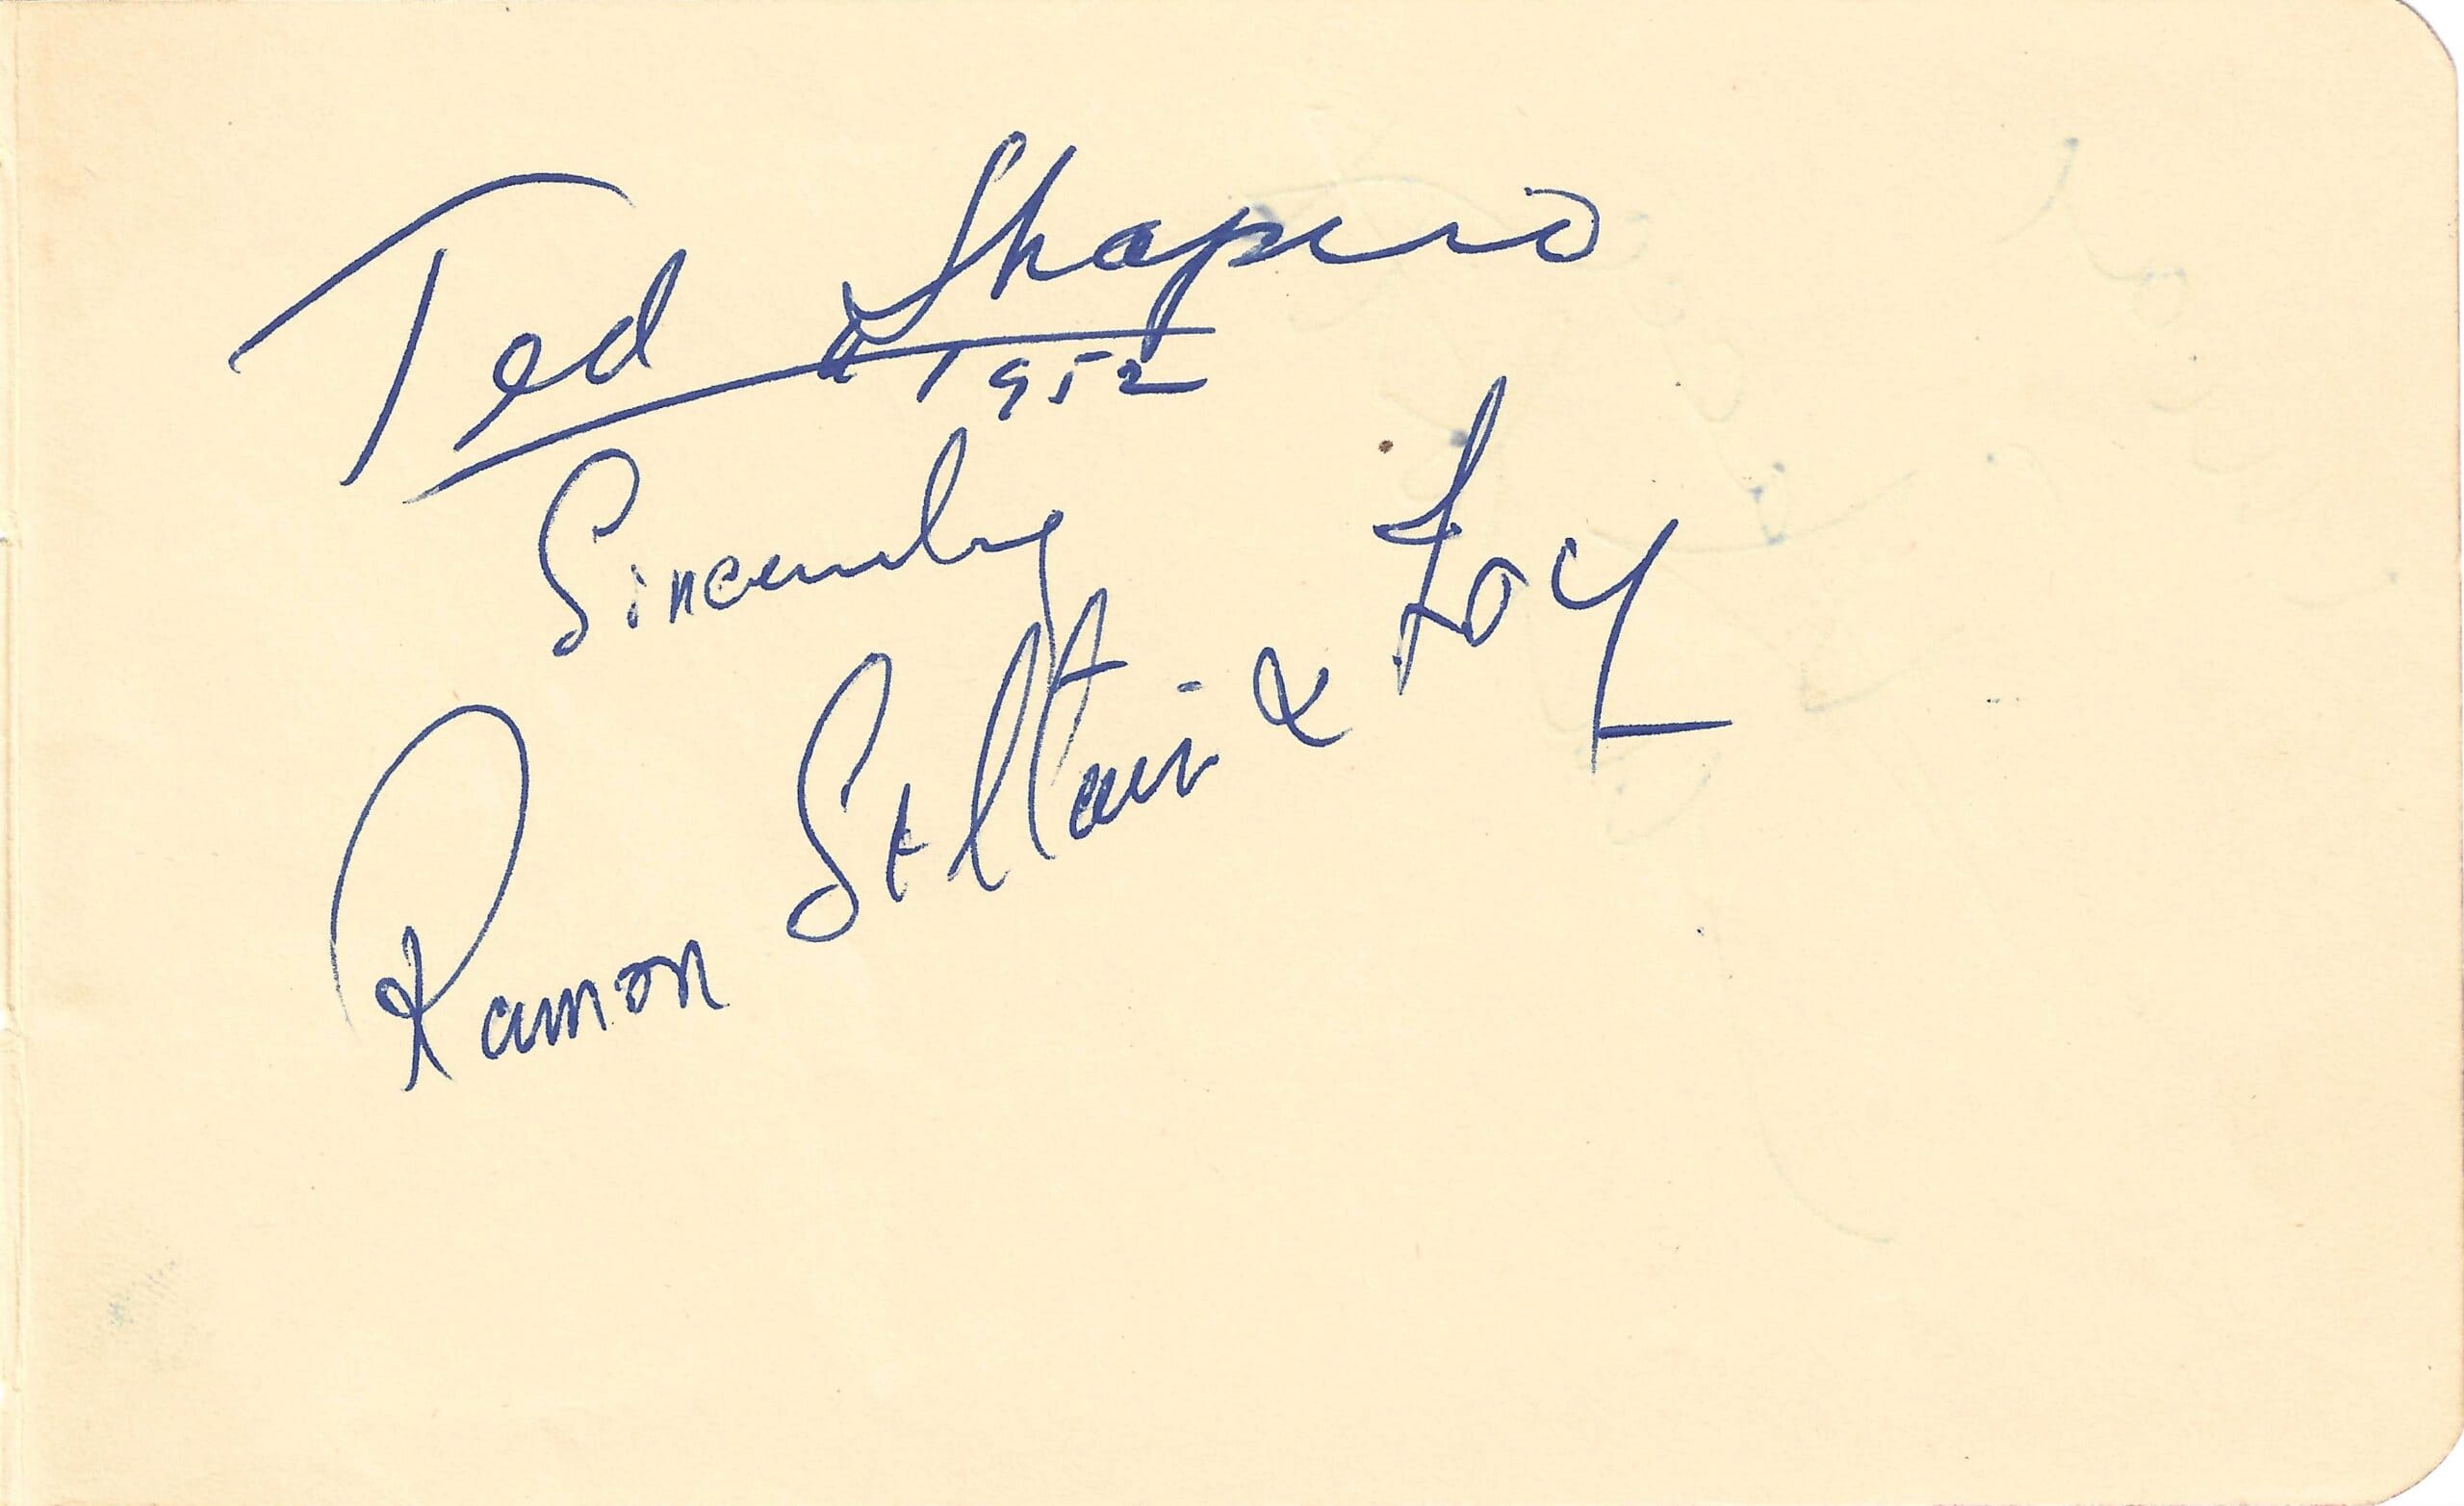 Ted Shapiro
1952
Sincerely
Ramon St Clair & Joy